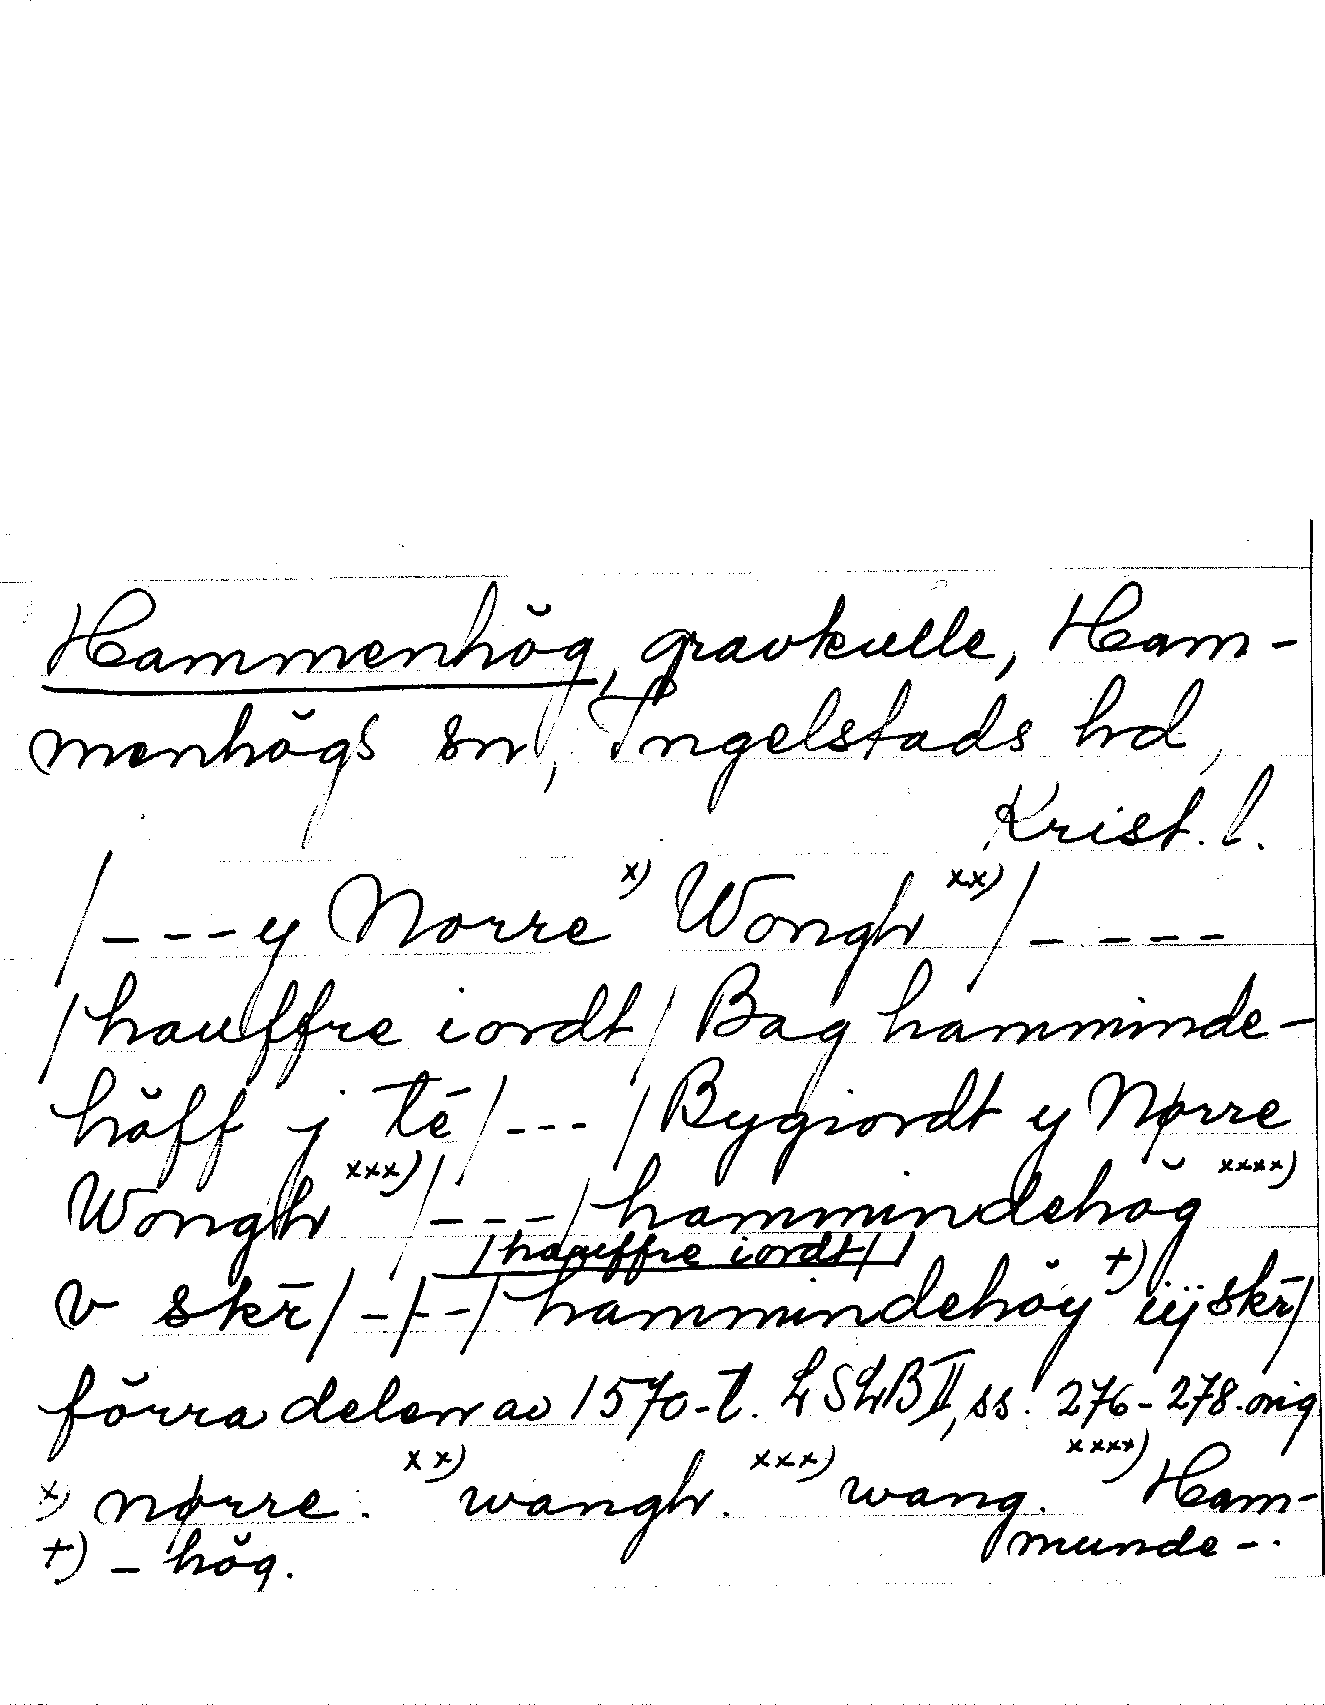 Hammenhög, gravkulle, Ham-
menhögs sn, Ingelstads hd,
Krist. l.
/---y Norre x) Wongh xx) /----
/hauffre iordt/ Bag hamminde-
höff j té/---/Bygiordt y Nørre
Wongh xxx)/---/hammindehög xxxx)
/hauffre iordt/
v skr̄/-/--/hammindehöy +) iij skr̄/
förra delen av 1570-t. LSLB II, ss. 276-278. orig
x) nørre. xx) wangh. xxx) wang. xxxx) Ham-
munde-.
+) - hög.